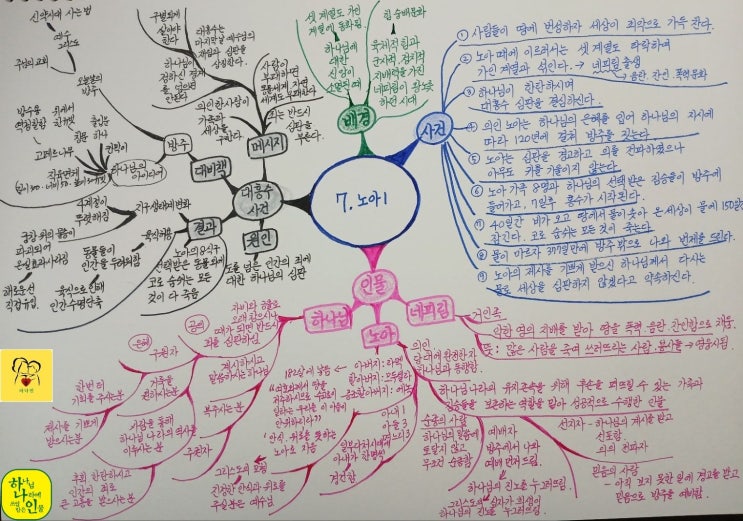 7. 노아 1
배경
셋 계열도 가인
계열에 동화됨.
하나님에
대한
신앙이
힘 숭배문화
육체적 힘과
군사적, 정치적
지배력을 가진
네피림이 왕노릇
하던 시대
사건
① 사람들이 땅에 번성하자 세상이 죄악으로 가득 찬다.
② 노아 때에 이르러서는 셋 계열도 타락하여
가인 계열과 섞인다. → 네피림 출생
→ 음란, 잔인, 폭력문화
③ 하나님이 한탄하시며
대홍수 심판을 결심하신다.
④ 의인 노아는 하나님의 은혜를 입어 하나님의 지시에
따라 120년에 걸쳐 방주를 짓는다
⑤ 노아는 심판을 경고하고 의를 전파하였으나
아무도 귀를 기울이지 않는다
⑥ 노아 가족 8명과 하나님의 선택받은 짐승들이 방주에
들어가고, 7일후 홍수가 시작된다.
⑦ 40일간 비가 오고 땅에서 물이 솟아 온 세상이 물에 150일
잠긴다. 코로 숨쉬는 모든 것이 죽는다
⑧ 물이 마르자 377일만에 방주 밖으로 나와 번제를 드린다.
⑨ 노아의 제사를 기쁘게 받으신 하나님께서 다시는
물로 세상을 심판하지 않겠다고 약속하신다.
대홍수
사건
메시지
구별되게
살아야
한다
대홍수는
마지막날 예수님의
재림과 심판을
상징한다.
하나님이
정하신 경계
를 넘으면
안된다
의인 한사람이
가족과
세상을
구한다.
사람이
부패하면
동물세계, 자연
세계도 부패한다
죄는 반드시
심판을
부른다.
대비책
방주
신약시대 사는 법
예수
그리스도
주님의 교회
오늘날의
방주
방수용
역청칠함
위에서
한규빗
창을냄
하나
고페르나무
칸막이
직육면체
하나님의
아이디어
결과
4계절이
뚜렷해짐
지구생태계변화
궁창 위의 물층이
파괴되어
온실효과사라짐
해로운선
직접유입
동물들이
인간을 두려워함
육식허용
육식으로인해
인간수명단축
노아의 8식구
선택받은 동물외에
코로 숨쉬는 모든
것이 다 죽음
원인
도를 넘은 인간의 죄에
대한 하나님의 심판
인물
하나님
자비와 긍휼로
오래 참으시나
때가 되면 반드시
죄를 심판하심
공의
은혜
구원자
한번 더
기회를 주시는분
제사를 기쁘게
받으시는분
거룩을
원하시는분
계시하시고
말씀하시는 하나님
복주시는 분
사람을 통해
하나님 나라의 역사를
이루시는 분
구원자
후회 한탄하시고
인간의 죄로
큰 고통을 받으시는 분
노아
182살에 낳음
아버지: 라멕
할아버지: 므두셀라
증조할아버지: 에녹
"안식, 위로를 뜻하는
노아로 지음
아내 1
아들 3
며느리 3
일부다처시대에
아내가 한명뿐
경건함
그리스도의 모형
진정한 안식과 위로를
주실분은 예수님
의인
당대에 완전한 자
하나님과 동행함.
하나님 나라의 유지존속을 위해 후손을 퍼뜨릴 수 있는 가족과
짐승들을 보존하는 역할을 맡아 성공적으로 수행한 인물
순종의 사람
하나님의 말씀에
토달지 않고
무조건 순종함
예배자
방주에서 나와
예배 먼저 드림
하나님의 진노를 누그러뜨림.
그리스도의 십자가 희생이
하나님의 진노를 누그러뜨림
선지자 - 하나님의 계시를 받고
선포함.
의의 전파자
믿음의 사람
- 아직 보지 못한 일에 경고를 받고
믿음으로 방주를 예비함.
네피림
거인족
악한 영의 지배를 받아 땅을 폭력·음란·잔인함으로 채움
뜻: 많은 사람을 죽여 쓰러뜨리는 사람, 용사들 → 영웅시됨.
하나님
나라에
쓰임
받은 인물